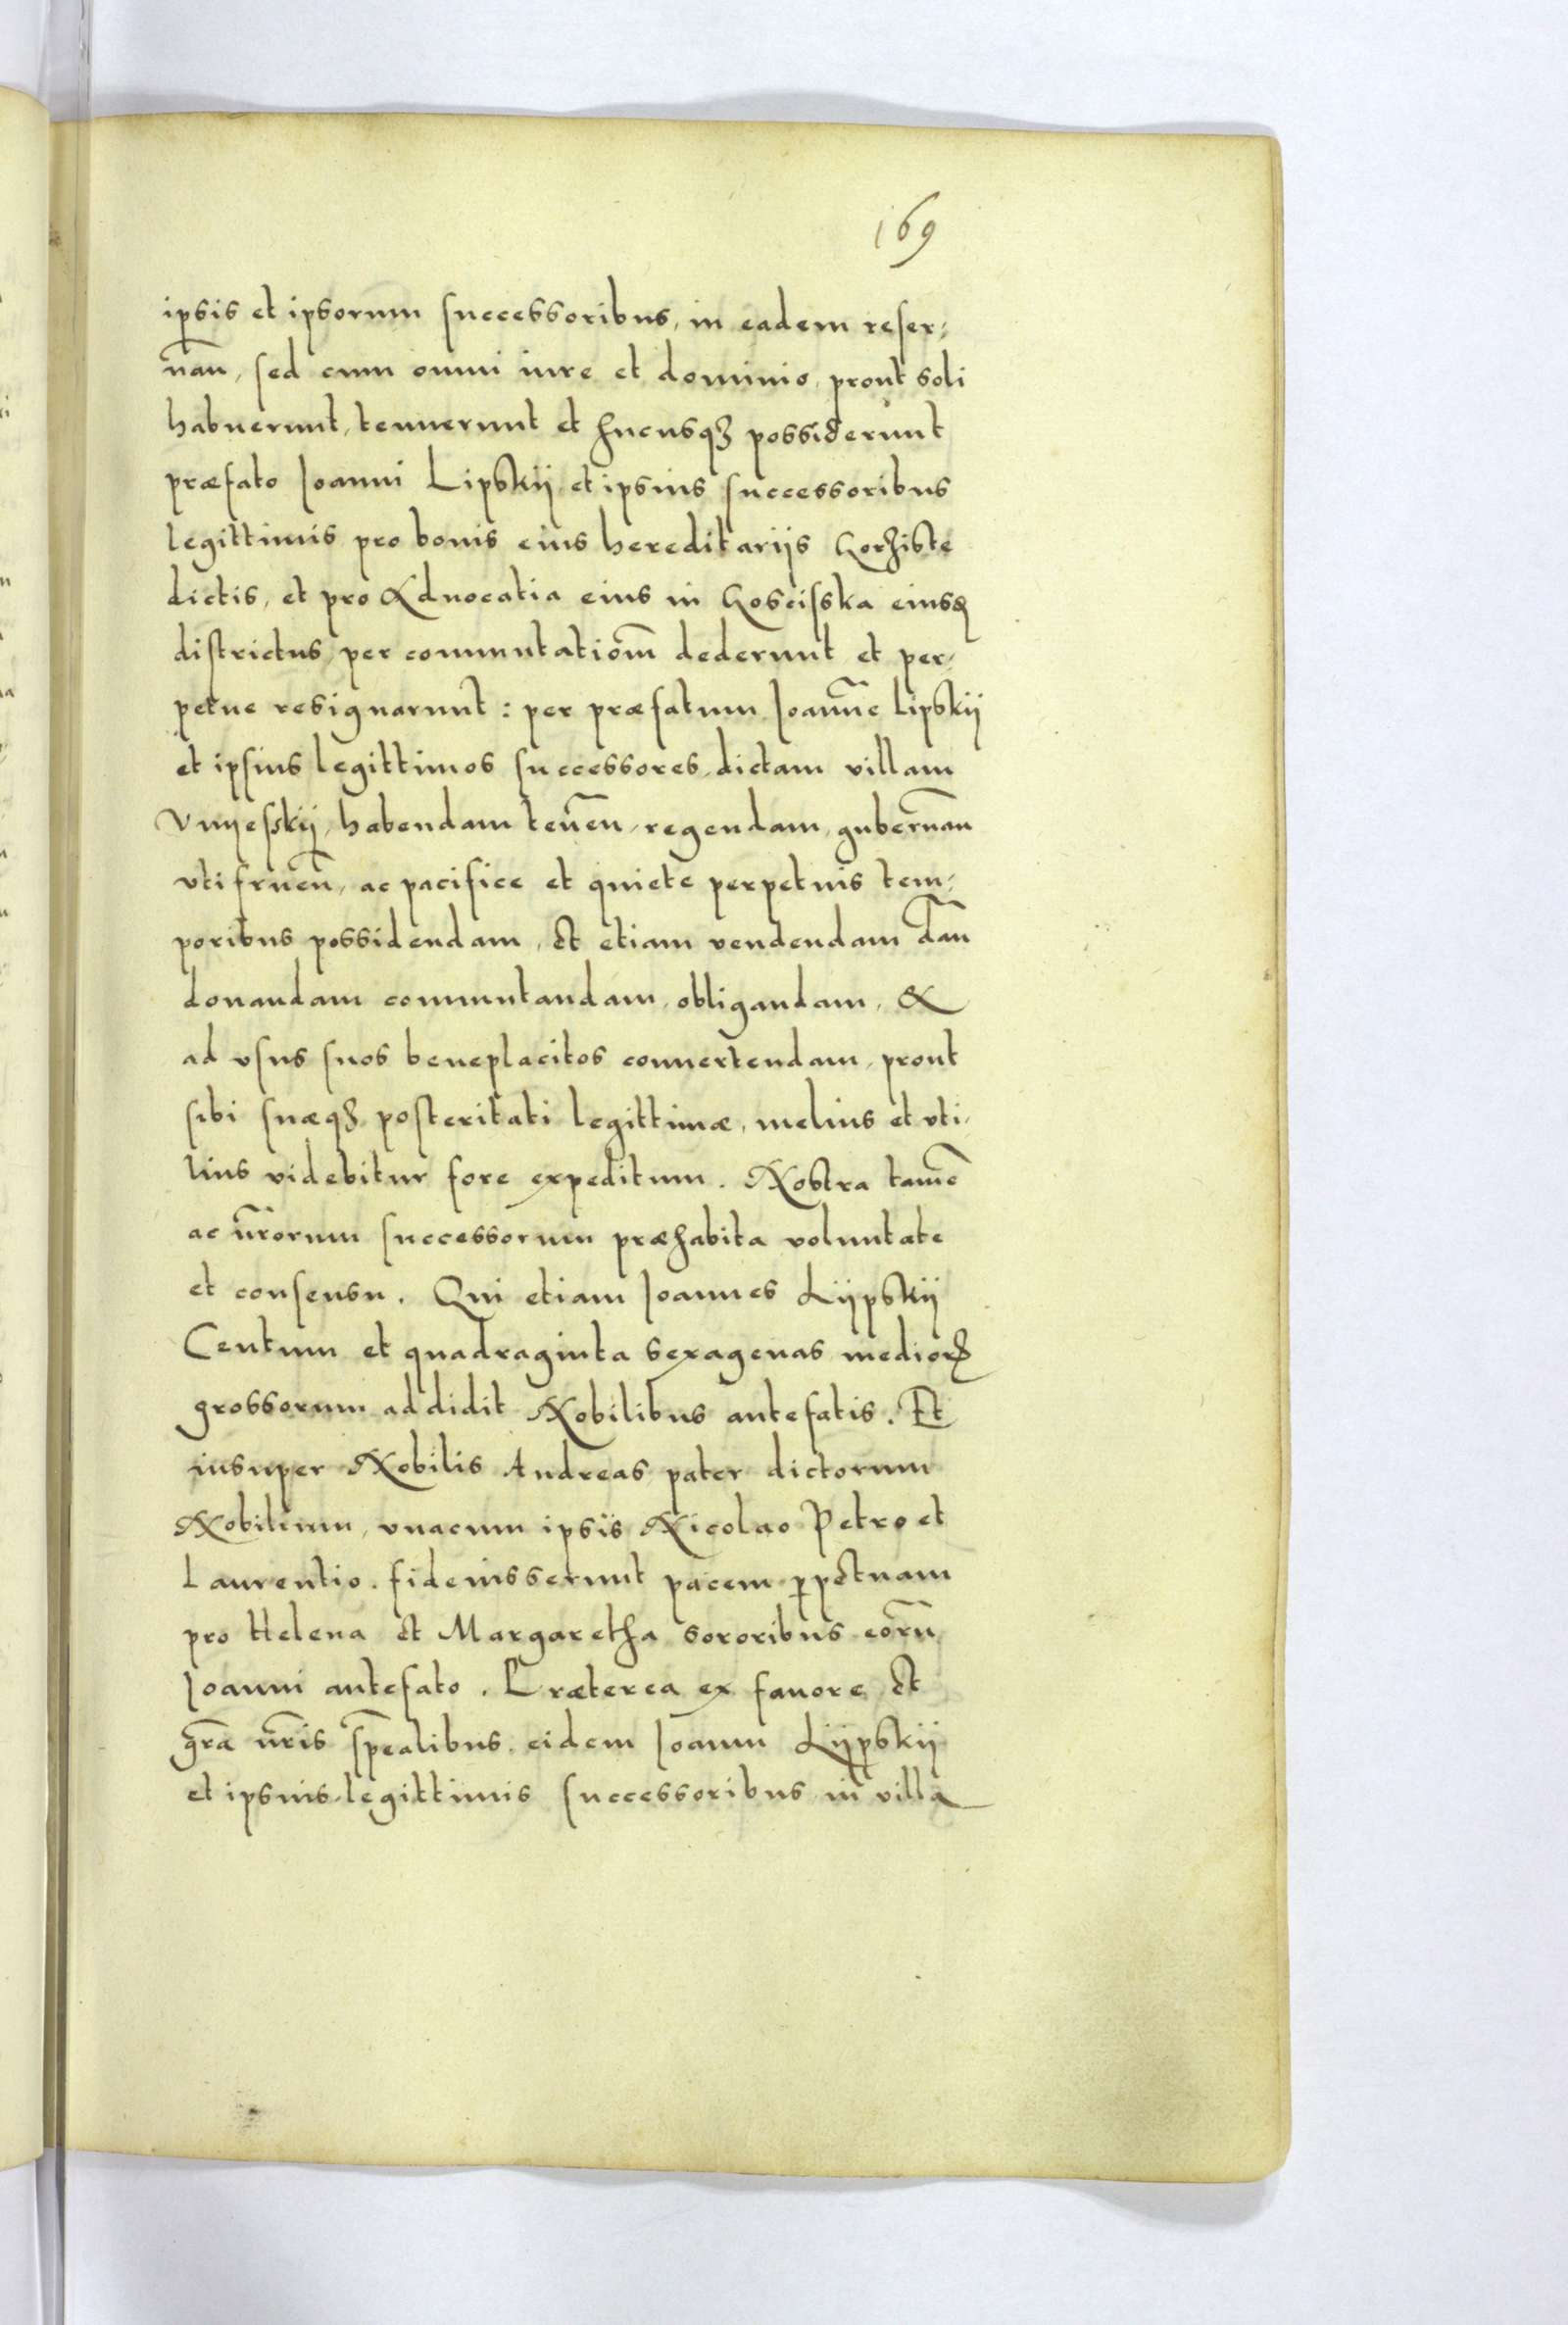 169
ipsis et ipsorum successoribus, in eadem reser-
uan̄, sed cum omni iure et dominio, prout soli
habuerunt, tenuerunt et hucusqꝫ possiderunt
præfato Ioanni Lipskij et ipsius successoribus
legittimis pro bonis eius hereditarijs Gorziste
dictis, et pro Aduocatia eius in Gosciſska eiusd
districtus, per commutatiom̄ dederunt et per-
petue resignarunt: per præfatum Ioannē Lipskij
et ipsius legittimos successores, dictam villam
Vnyeſskij, habendam teneñ, regendam, gubernan̄
vtifrueñ, ac pacifice et quiete perpetuis tem-
poribus possidendam, et etiam vendendam dan̄
donandam commutandam, obligandam, &
ad vsus suos beneplacitos conuertendam, prout
sibi suæqꝫ posteritati legittimæ, melius et vti-
lius videbitur fore expeditum. Nostra tamē
ac nr̄orum successorum præhabita voluntate
et consensu. Qui etiam Ioannes Lijpskij
Centum et quadraginta sexagenas mediorꝫ
grossorum addidit Nobilibus antefatis. Et
insuper Nobilis Andreas pater dictorum
Nobilium, vnacum ipsis Nicolao Petro et
Laurentio. fideiusserunt pacem ꝑpetuam
pro Helena et Margaretha sororibus eorū
Ioanni antefato. Præterea ex fauore et
gr̄a nr̄is sp̄ealibus, eidem Ioanni Lijpskij
et ipsius legittimis successoribus in villa